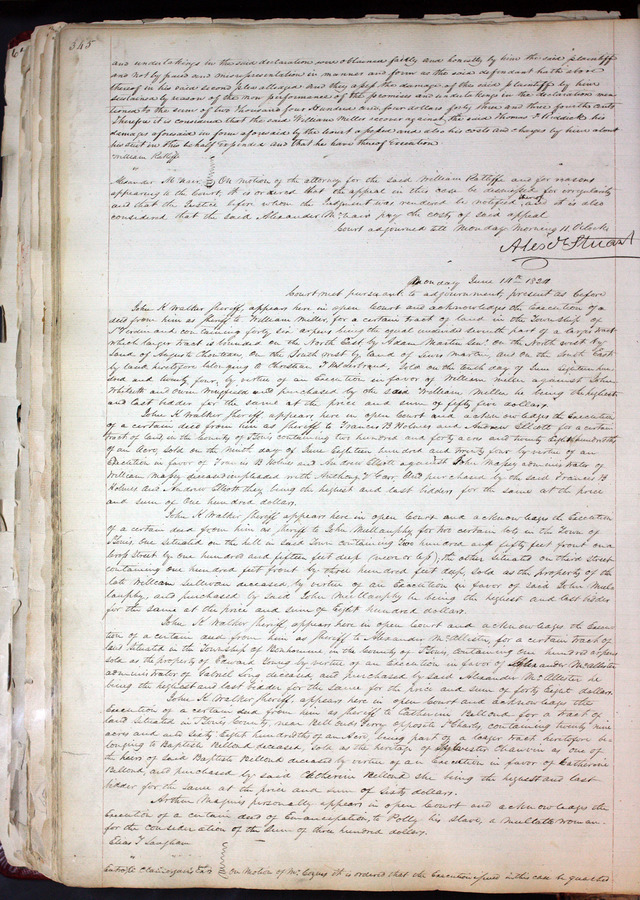 345
and undertakings in the said declaration were obtained fairly and honestly by him the said plaintiff
and not by fraud and misrepresentation in manner and form as the said defendant hath above
thereof in his said second plea alleged And they assess the damages of the said plaintiff by him
sustained by reason of the non performance of the promises and undertakings in the declaration men
tioned to the sum of two thousand four hundred and four dollars forty three and three fourths cents
Therefore it is considered that the said William Miller recover against the said Thomas F Riddick his
damages aforesaid in form aforesaid by the Court assessed and also his costs and charges by him about
his suit in this behalf expended and that he have thereof Execution
William Ratliff
Alexander McNair On motion of the attorney for the said William Ratliff and for reasons
appearing to the Court, it is ordered that the appeal in this case be dismissed for irregularity
and that the Justice before whom the Judgment was rendered be notified thereof and it is also
considered that the said Alexander McNair pay the costs of said appeal
Court adjourned till Monday morning 11 O'Clock
Alexr Stuart
Monday June 14th 1824
Court met pursuant to adjournment, present as before
John K Walker Sheriff, appears here in open Court and acknowledges the Execution of a
deed from him as sheriff to William Miller, for a certain tract of land in the Township of
St Ferdin and containing forty six arpens being the equal undivided seventh part of a larger tract
which larger tract is bounded on the North East by Adam Martin Senr. on the North west by
land of Auguste Chouteau, on the South west by land of Lewis Martin, and on the South East
by land heretofore belonging to Christian F Sold on the tenth day of June Eighteen hun
dred and twenty four, by virtue of an Execution in favor of William Miller against John
Whitsett and Owen and purchased by the said William Miller he being the highest
and last bidder for the same at the price and sum of fifty five dollars.
John K Walker Sheriff appears here in open Court and acknowledges the Execution
of a certain deed from him as Sheriff to Francis B Holmes and Andrew Elliott for a certain
tract of land, in the County of St Louis containing two hundred and forty acres and twenty hundredths
of an Acre, sold on the Ninth day of June Eighteen hundred and twenty four by virtue of an
Execution in favor of Francis B Holmes and Andrew Elliott against John Massey administrator of
William Massey deceased impleaded with Anthony F Carr. and purchased by the said Francis B
Holmes and Andrew Elliott they being the highest and last bidders for the same at the price
and sum of One hundred dollars.
John K Walker Sheriff appears here in open Court and acknowledges the Execution
of a certain deed from him as Sheriff to John Mullanphy, for two certain lots in the Town of
St Louis, one situated on the hill in said Town containing Two hundred and eighty feet front on a
Cross Street by one hundred and fifteen feet deep (more or less); the other situated on third street
containing one hundred feet front by three hundred feet deep, sold as the property of the
late William Sullivan deceased, by virtue of an Execution in favor of said John Mul
lanphy, and purchased by said John Mullanphy he being the highest and last bidder
for the same at the price and sum of Eight hundred dollars.
John K Walker Sheriff appears here in open Court and acknowledges the Execu
tion of a certain deed from him as sheriff to Alexander McAllister, for a certain tract of
land situated in the Township of Bonhomme in the County of St Louis, containing one hundred arpens
sold as the property of Edward Young by virtue of an Execution in favor of Alexander McAllister
administrator of Gabriel Long deceased, and purchased by said Alexander McAllister he
being the highest and last bidder for the same for the price and sum of forty Eight dollars.
John K Walker Sheriff, appears here in open Court and acknowledges the
Execution of a certain deed from him as sheriff to Catherine Bellond, for a tract of
land situated in St Louis County near Bellonds Ferry opposite St Charles containing twenty nine
acres and Sixty Eight hundredths of an Acre, being part of a larger tract heretofore be
longing to Baptiste Bellond deceased, sold as the heritage of Sylvester Chauvin as one of
the heirs of said Baptiste Bellond deceased by virtue of an Execution in favor of Catherine
Bellond, and purchased by said Catherine Bellond she being the highest and last
bidder for the same at the price and sum of Sixty dollars.
Arthur Magenis personally appears in open Court and acknowledges the
Execution of a certain deed of Emancipation, to Polly his slave, a mullatto woman.
for the consideration of the sum of three hundred dollars.
Elias T Langham
Exr on Motion of Mr it is ordered that the Execution issued in this case be quashed